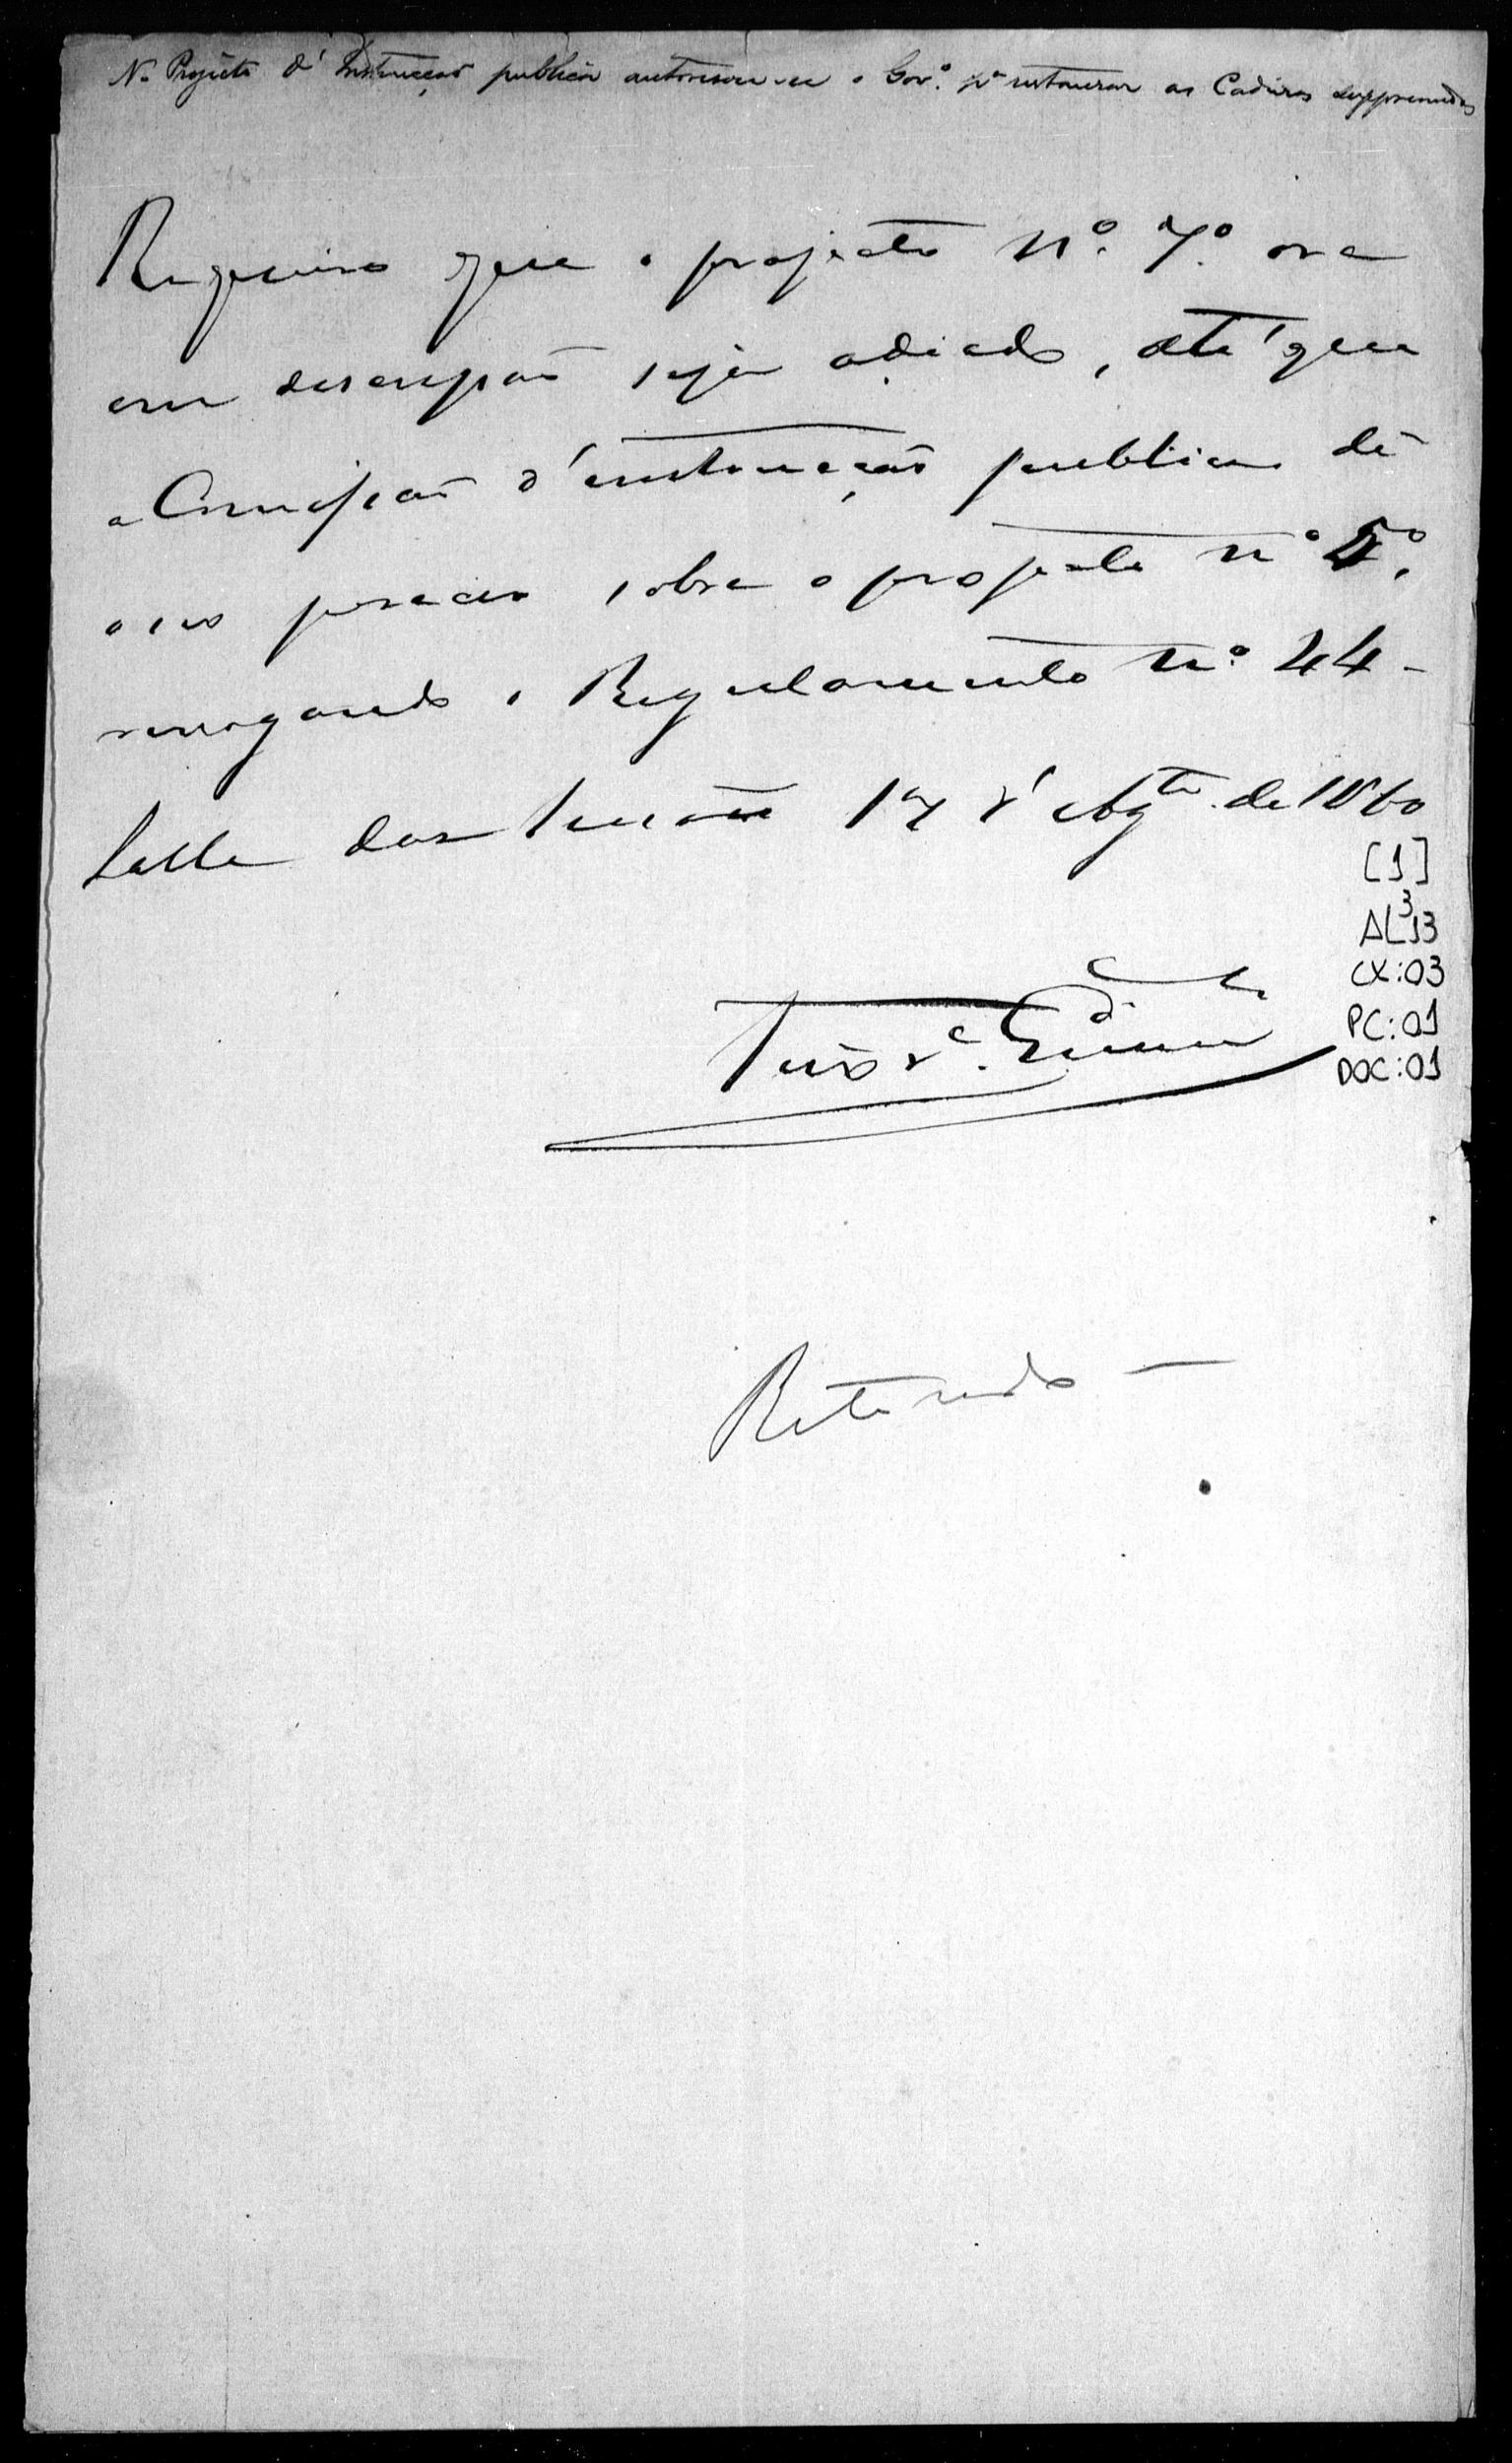 No Projecto d'Instrucção publica autorisou-se o Gov.º pª restaurar as Cadeiras supprimidas
Requeiro que o projecto Nº. 7º. ora
em discussão seja adiado, até que
a Commissão d'instrucção publica dê
o seo parecer sobre o projecto nº 5º,
revogando o Regulamento Nº. 44 -
Salla das Sessões 17 d'Agto. de 1860
[1]
AL³13
CX:03
PC:01
DOC:01
Retirado -